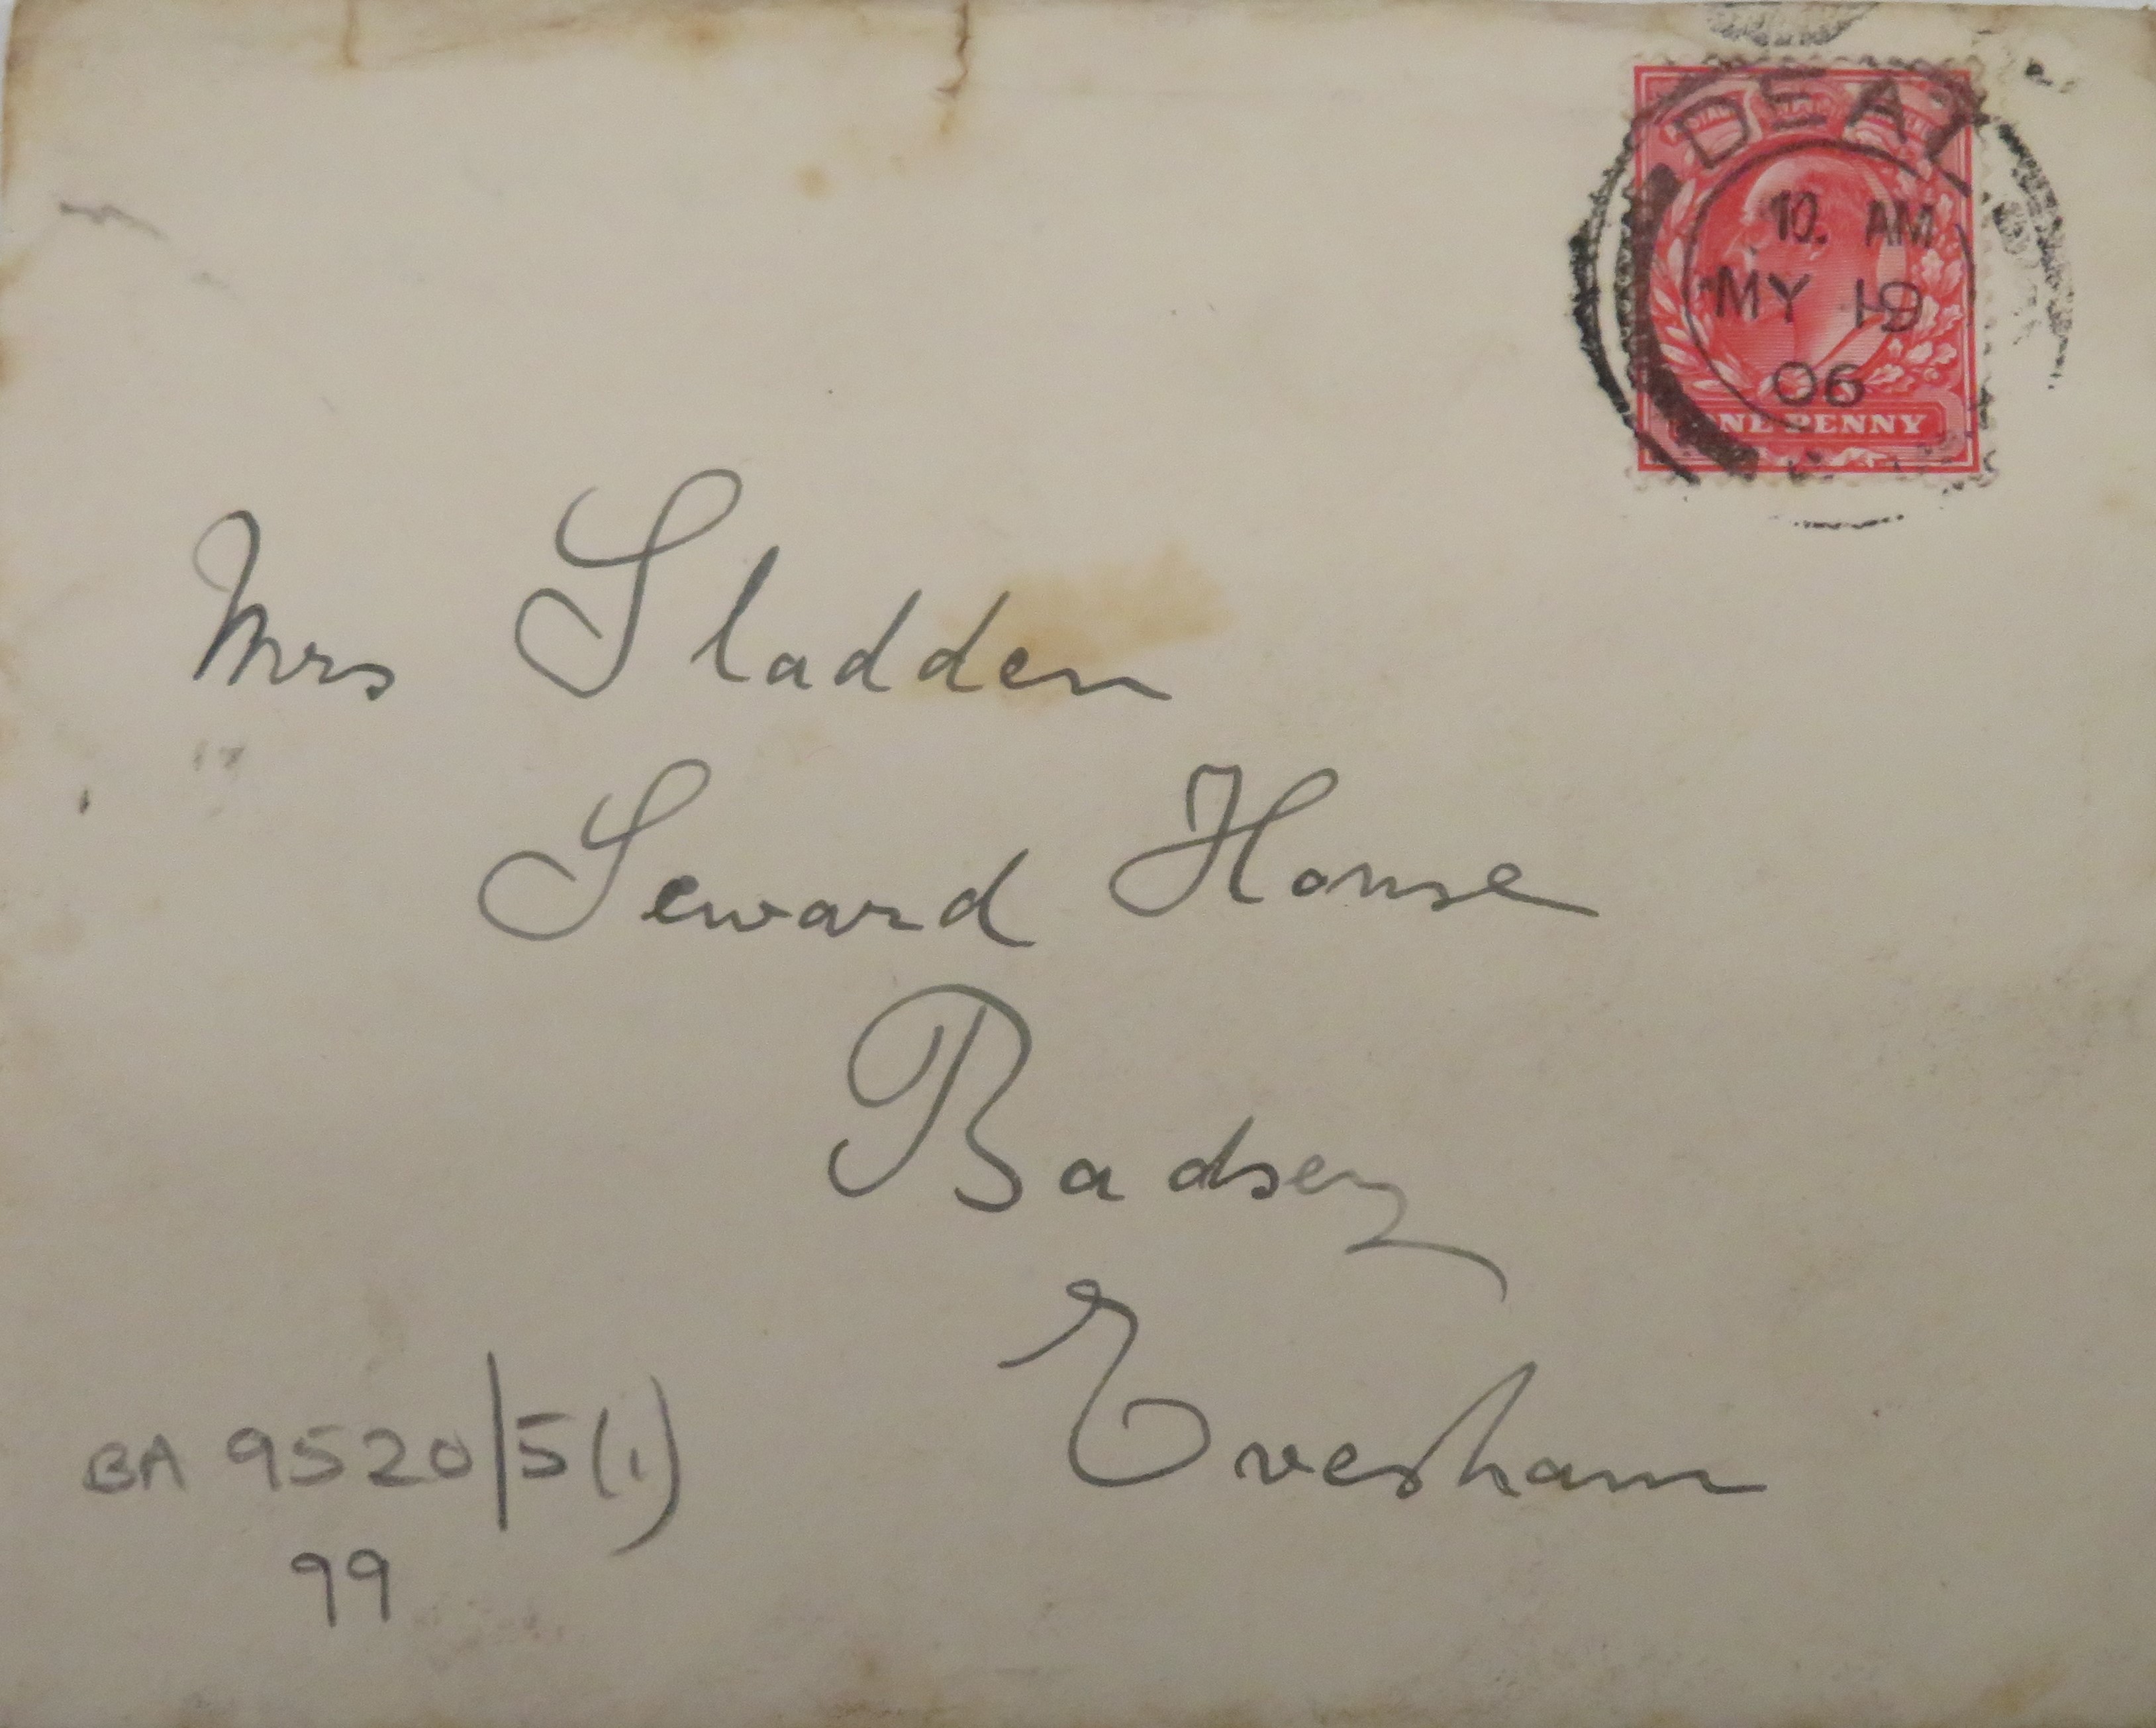 DEAL
10. AM
MY 19
06
ONE PENNY
Mrs Sladden
Seward House
Badsey
Evesham
BA 9520/5(1)
99